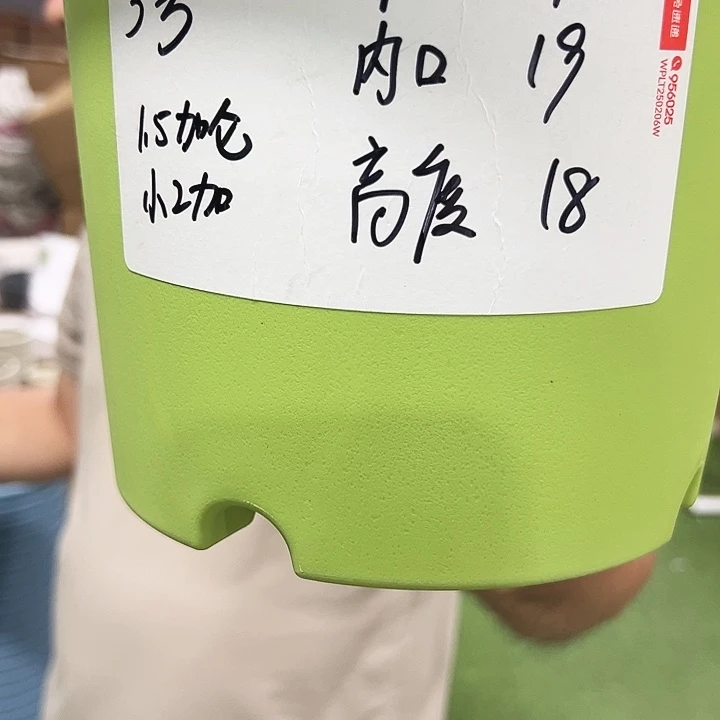 内口 19
1.5加仑
小2加
高度 18
956025
WPLT250206W